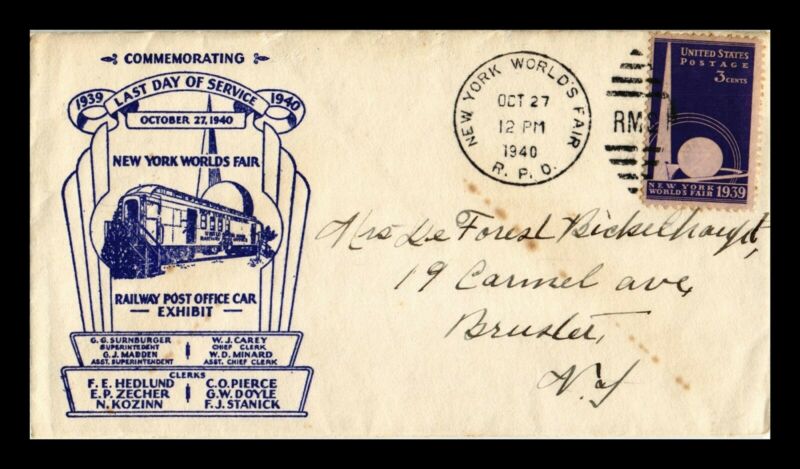 COMMEMORATING
1939 LAST DAY OF SERVICE 1940
OCTOBER 27, 1940
NEW YORK WORLDS FAIR
RAILWAY POST OFFICE CAR
— EXHIBIT —
G. G. SURNBURGER
SUPERINTENDENT
G. J. MADDEN
ASST. SUPERINTENDENT
W. J. CAREY
CHIEF CLERK
W. D. MINARD
ASST. CHIEF CLERK
CLERKS
F. E. HEDLUND
E. P. ZECHER
N. KOZINN
C. O. PIERCE
G. W. DOYLE
F. J. STANICK
NEW YORK WORLD'S FAIR
OCT 27
12 PM
1940
R. P. O.
RMS
UNITED STATES
POSTAGE
3 CENTS
NEW YORK
WORLD'S FAIR 1939
Mrs De Forest Bickelhaupt,
19 Carmel ave,
Brewster,
N.Y